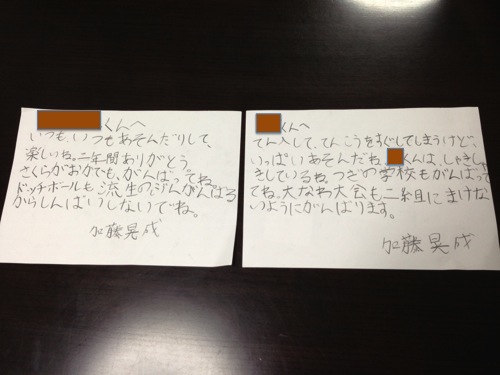 くんへ
いつも、いつもあそんだりして、
楽しいね。二年間ありがとう
さくらがおかでも、がんばってね。
ドッチボールも流生のぶんがんばる
からしんぱいしないでね。
加藤晃成
くんへ
てん入して、てんこうをすぐしてしまうけど、
いっぱいあそんだね くんは、しゃきしゃ
きしているね。つぎの学校もがんばって
てね。大なわ大会も二組にまけな
いようにがんばります。
加藤晃成